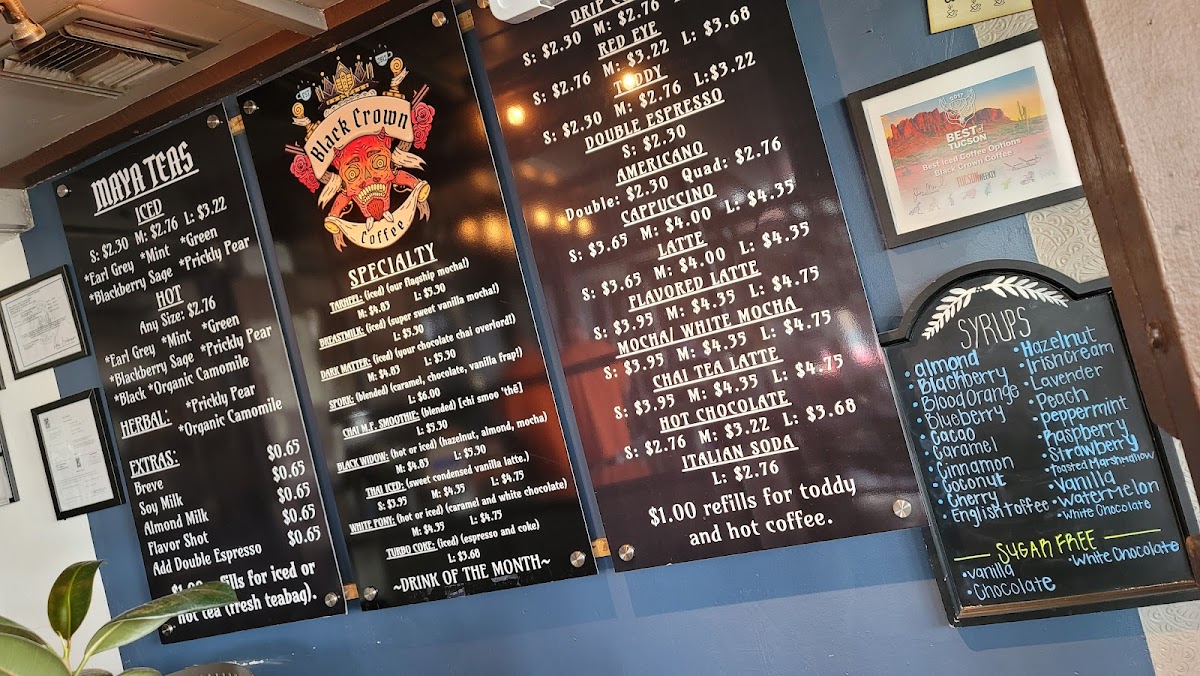 MAYA TEAS
ICED
S: $2.30 M: $2.76 L: $3.22
*Earl Grey *Mint *Green
*Blackberry Sage *Prickly Pear
HOT
Any Size: $2.76
*Earl Grey *Mint *Green
*Blackberry Sage *Prickly Pear
*Black *Organic Camomile
HERBAL: *Prickly Pear
*Organic Camomile
EXTRAS:
Breve $0.65
Soy Milk $0.65
Almond Milk $0.65
Flavor Shot $0.65
Add Double Espresso $0.65
refills for iced or
hot tea (fresh teabag).
Black Crown
Coffee
SPECIALTY
TARHEEL: (iced) (our flagship mocha!)
M: $4.85 L: $5.30
BREASTMILK: (iced) (super sweet vanilla mocha!)
L: $5.30
DARK MATTER: (iced) (your chocolate chai overlord!)
M: $4.85 L: $5.30
SPORK: (blended) (caramel, chocolate, vanilla frap!)
L: $6.00
CHAI M.F. SMOOTHIE: (blended) [chi smoo 'thē]
L: $5.30
BLACK WIDOW: (hot or iced) (hazelnut, almond, mocha)
M: $4.85 L: $5.30
THAI ICED: (sweet condensed vanilla latte.)
S: $3.95 M: $4.35 L: $4.75
WHITE PONY: (hot or iced) (caramel and white chocolate)
M: $4.35 L: $4.75
TURBO COKE: (iced) (espresso and coke)
L: $3.68
~DRINK OF THE MONTH~
DRIP
S: $2.30 M: $2.76
RED EYE
S: $2.76 M: $3.22 L: $3.68
TODDY
S: $2.30 M: $2.76 L:$3.22
DOUBLE ESPRESSO
S: $2.30
AMERICANO
Double: $2.30 Quad: $2.76
CAPPUCCINO
S: $3.65 M: $4.00 L: $4.35
LATTE
S: $3.65 M: $4.00 L: $4.35
FLAVORED LATTE
S: $3.95 M: $4.35 L: $4.75
MOCHA/ WHITE MOCHA
S: $3.95 M: $4.35 L: $4.75
CHAI TEA LATTE
S: $3.95 M: $4.35 L: $4.75
HOT CHOCOLATE
S: $2.76 M: $3.22 L: $3.68
ITALIAN SODA
L: $2.76
$1.00 refills for toddy
and hot coffee.
2017
BEST of
TUCSON
Best Iced Coffee Options
Black Crown Coffee
TUCSON WEEKLY
SYRUPS
• almond
• Blackberry
• Blood Orange
• Blueberry
• Cacao
• Caramel
• Cinnamon
• Coconut
• Cherry
• English toffee
• Hazelnut
• Irish Cream
• Lavender
• Peach
• peppermint
• Raspberry
• Strawberry
• Toasted Marshmallow
• Vanilla
• Watermelon
• White Chocolate
SUGAR FREE
• vanilla
• Chocolate
• White Chocolate